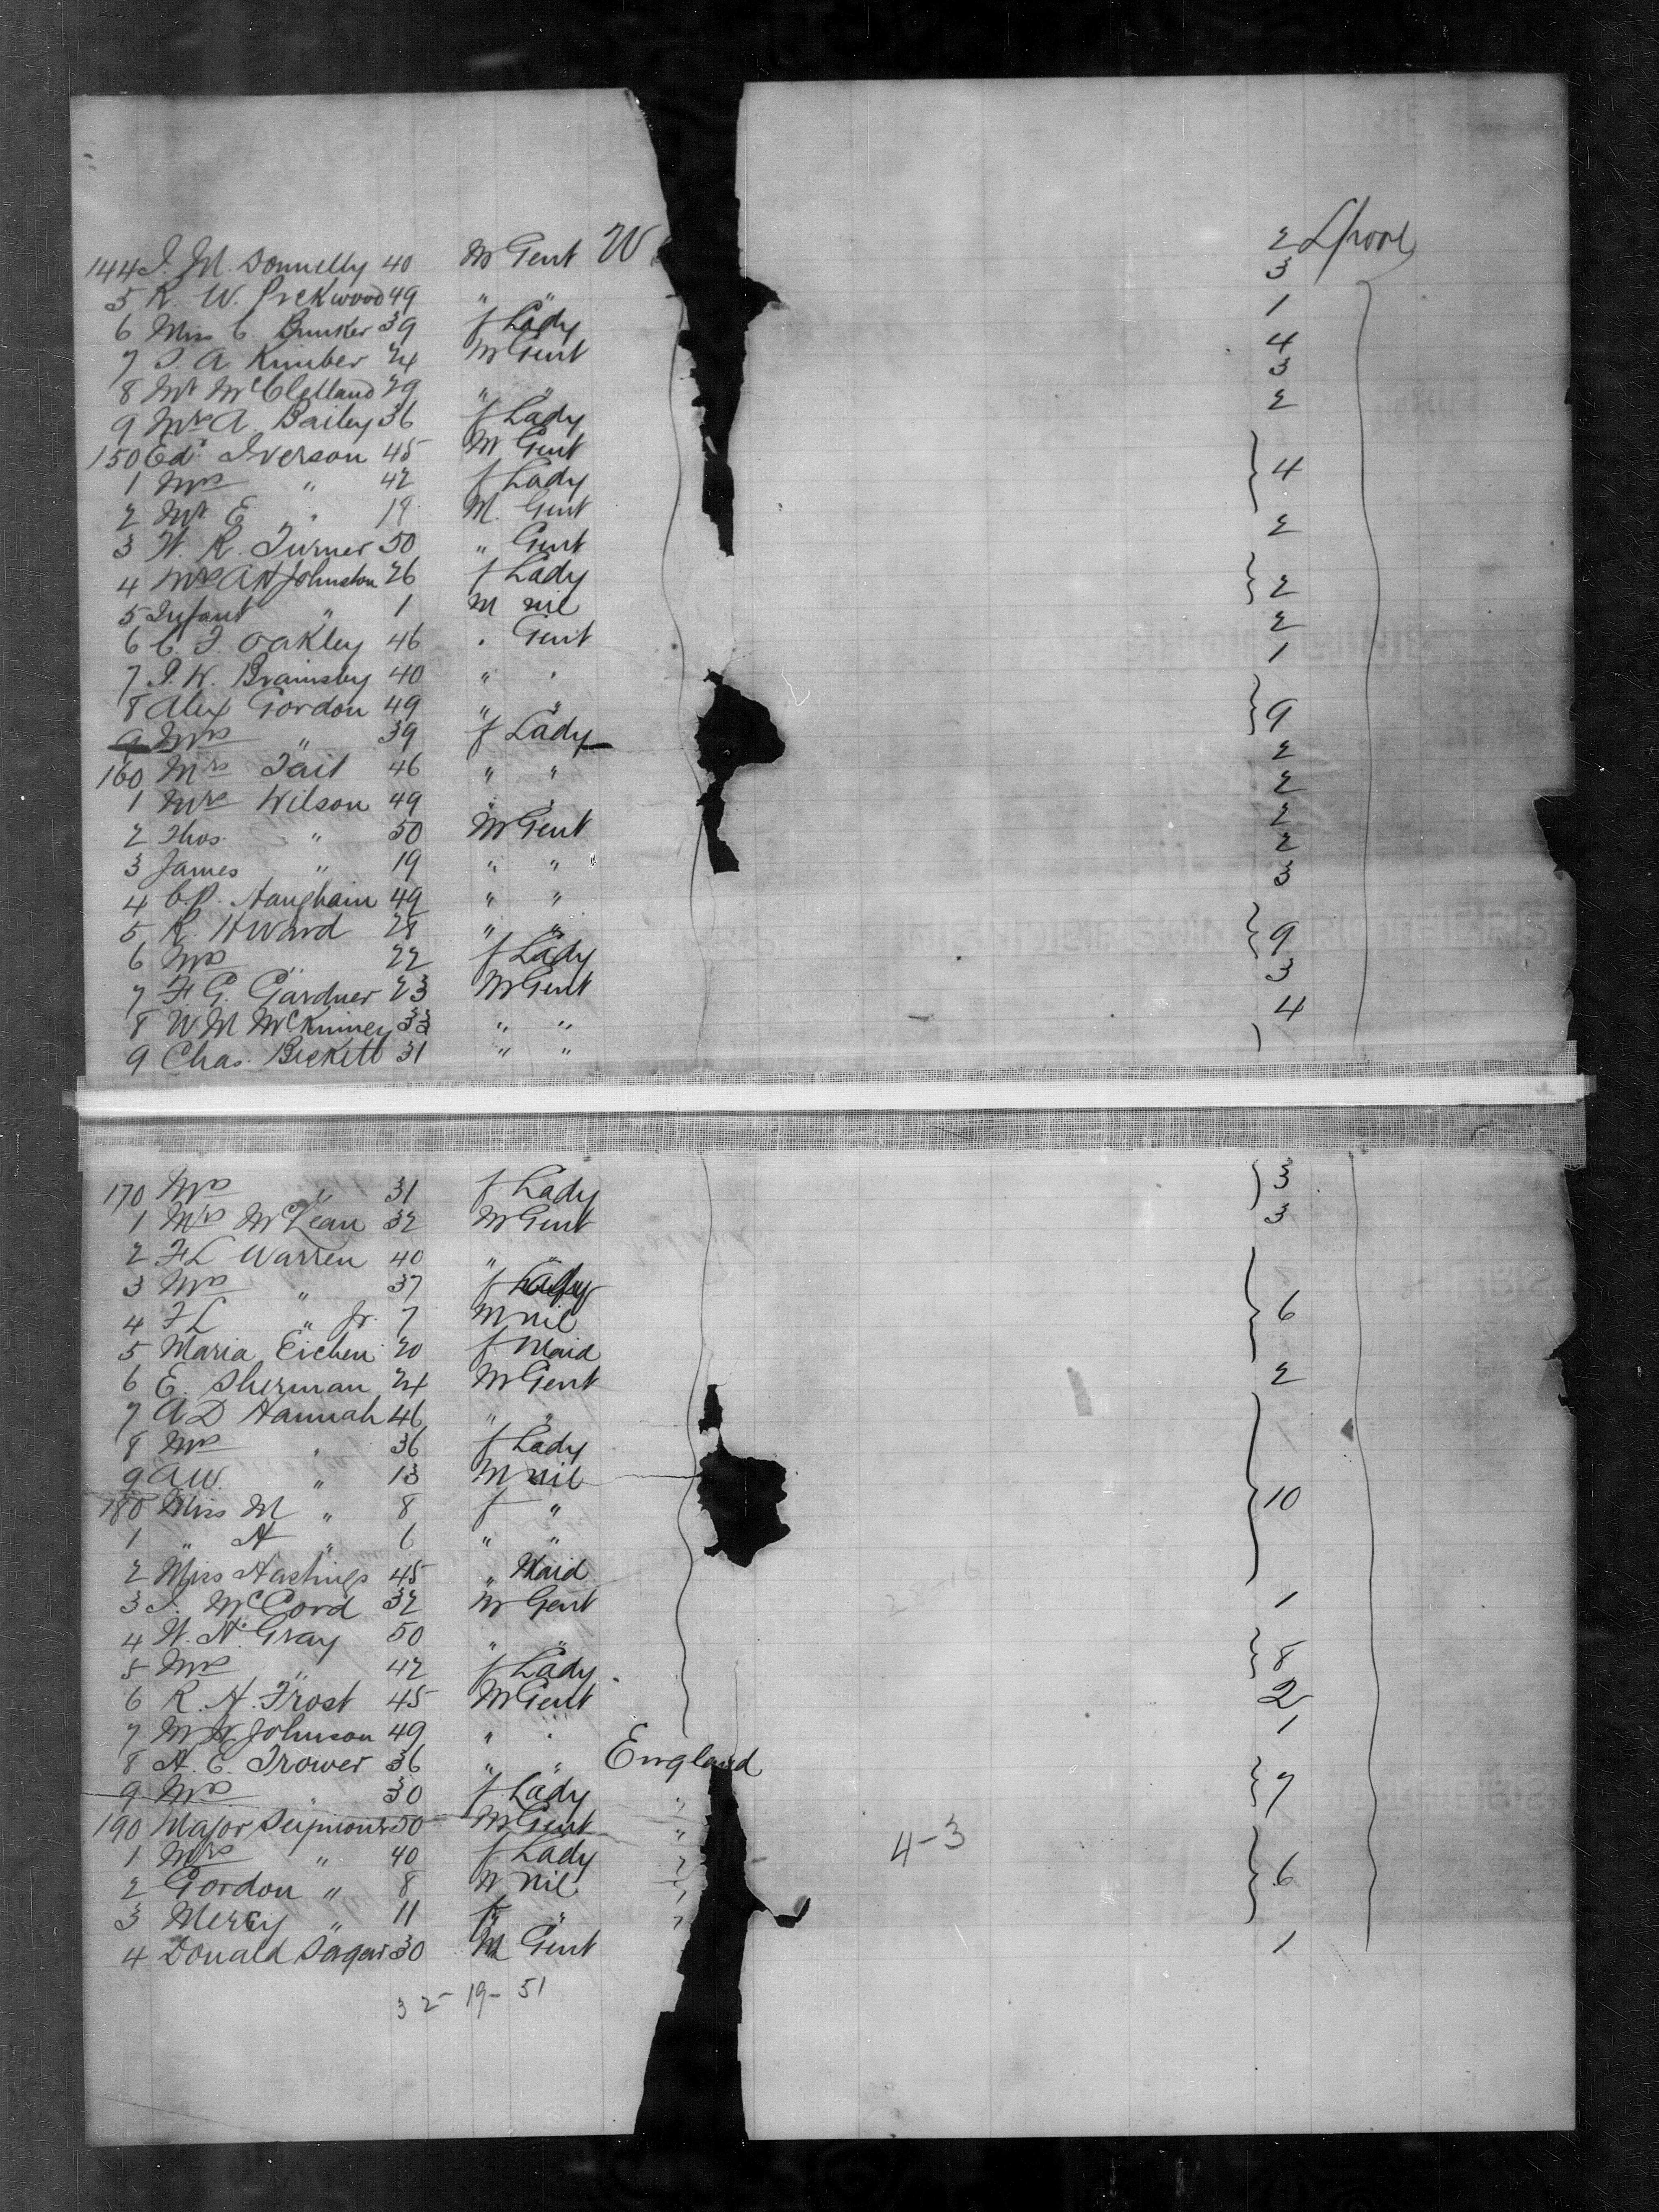 144 J. M. Donnelly 40 M Gent W 2 Lpool
5 R. W. Prekwood 49 " " 3
6 Miss C. Bunker 39 f Lady 1
7 S. A Kimber 24 M Gent 4
8 Mr McClelland 29 " " 3
9 Mrs A. Bailey 36 f Lady 2
150 Ed. Iverson 45 M Gent
1 Mrs " 42 f Lady } 4
2 Mr E " 19 M. Gent
3 W. R. Turner 50 " Gent 2
4 Mrs A H Johnston 26 f Lady } 2
5 Infant " 1 M nil
6 C. F. Oakley 46 " Gent 2
7 J. W. Bramsby 40 " " 1
8 Alex Gordon 49 " " } 9
9 Mrs " 39 f Lady
160 Mrs Tait 46 " " 2
1 Mrs Wilson 49 " " 2
2 Thos. " 50 M Gent 2
3 James " 19 " " 2
4 C.P. Haugham 49 " " 3
5 R. H Ward 28 " " } 9
6 Mrs " 22 f Lady
7 F. G. Gardner 23 M Gent 3
8 W M McKinney 33 " " 4
9 Chas. Beckett 31 " " }
170 Mrs " 31 f Lady } 3
1 Mrs McLean 32 M Gent 3
2 F L Warren 40 " "
3 Mrs " 37 f Lady } 6
4 F L " Jr. 7 M nil
5 Maria Eichen 20 f Maid
6 E. Sherman 24 M Gent 2
7 A D Hannah 46 " "
8 Mrs " 36 f Lady
9 A W. " 13 M nil } 10
180 Miss M " 8 f "
1 " H " 6 " "
2 Miss Hastings 45 " Maid
3 J. McCord 32 M Gent 1
4 W. H. Gray 50 " " } 8
5 Mrs " 42 f Lady
6 R. H. Frost 45 M Gent 2
7 M W Johnson 49 " " 1
8 H. E. Trower 36 " " England } 7
9 Mrs " 30 f Lady "
190 Major Seymour 50 M Gent "
1 Mrs " 40 f Lady " 4-3 } 6
2 Gordon " 8 M nil "
3 Mercy " 11 f " "
4 Donald Sagar 30 M Gent 1
32 - 19 - 51